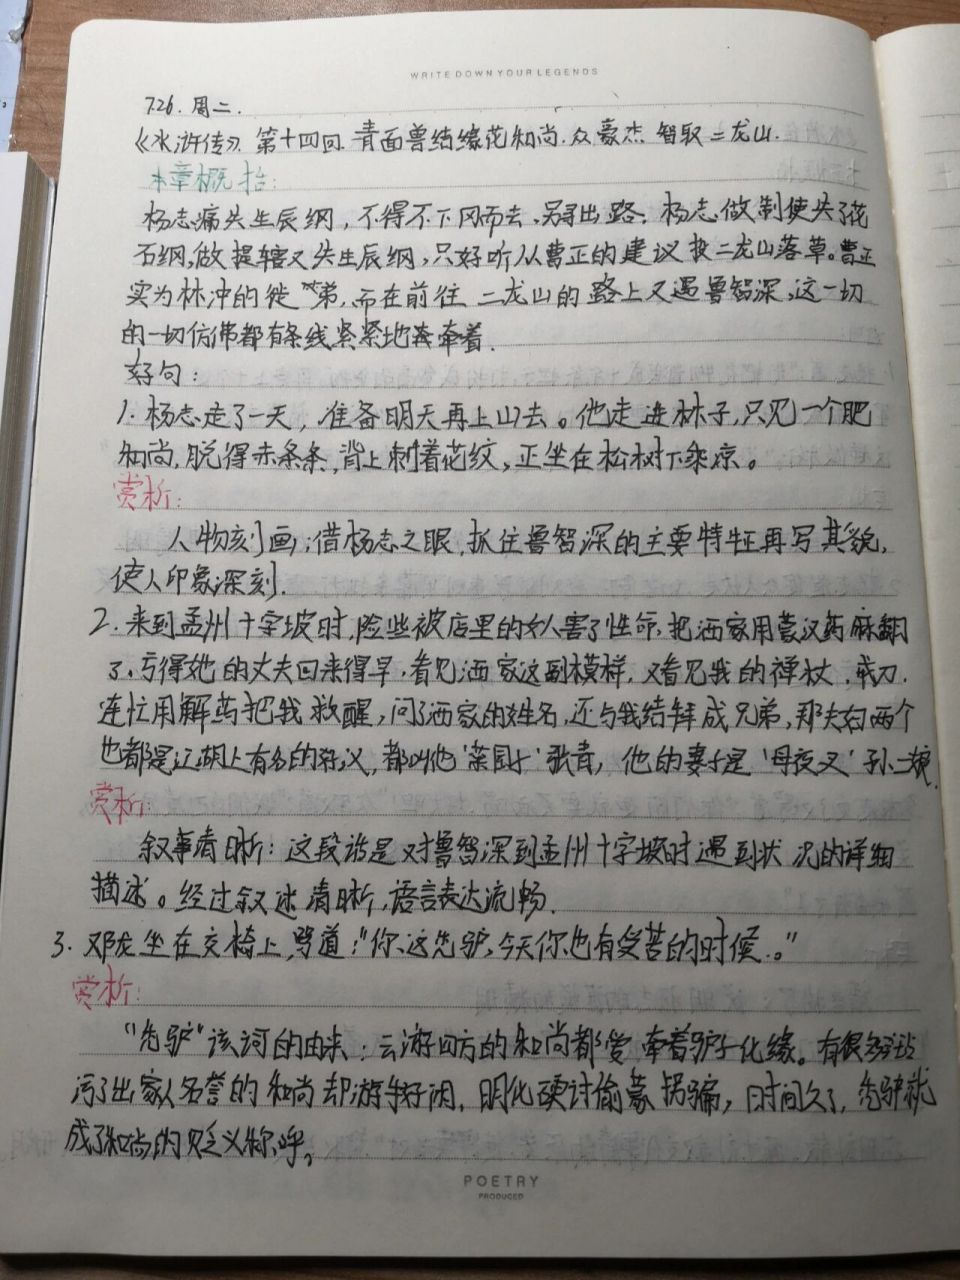 WRITE DOWN YOUR LEGENDS
7.26. 周二.
《水浒传》. 第十四回. 青面兽结缘花和尚. 众豪杰 智取二龙山.
本章概括:
杨志痛失生辰纲，不得不下冈而去，另寻出路. 杨志做制使失了花
石纲，做提辖又失生辰纲，只好听从曹正的建议投二龙山落草。曹正
实为林冲的徒弟，而在前往二龙山的路上又遇鲁智深，这一切
的一切仿佛都有条线紧紧地牵着.
好句：
1. 杨志走了一天，准备明天再上山去。他走进林子，只见一个肥
和尚，脱得赤条条，背上刺着花纹，正坐在松树下乘凉。
赏析:
人物刻画；借杨志之眼，抓住鲁智深的主要特征再写其貌，
使人印象深刻.
2. 来到孟州十字坡时，险些被店里的女人害了性命，把洒家用蒙汉药麻翻
了. 亏得她的丈夫回来得早，看见洒家这副模样，又看见我的禅杗. 戒刀.
连忙用解药把我救醒，问了洒家的姓名，还与我结拜成兄弟，那夫妇两个
也都是江湖上有名的好义，都叫他'菜园子'张青，他的妻子是'母夜叉'孙二娘.
赏析:
叙事清晰：这段话是对鲁智深到孟州十字坡时遇到状况的详细
描述。经过叙述清晰，语言表达流畅.
3. 邓龙坐在交椅上，骂道："你这秃驴，今天你也有受苦的时候。"
赏析:
"秃驴"该词的由来：云游四方的和尚都爱牵着驴子化缘。有很多玷
污了出家人名誉的和尚却游手好闲，明化硬讨偷蒙拐骗，时间久了，秃驴就
成了和尚的贬义称呼。
POETRY
PRODUCED